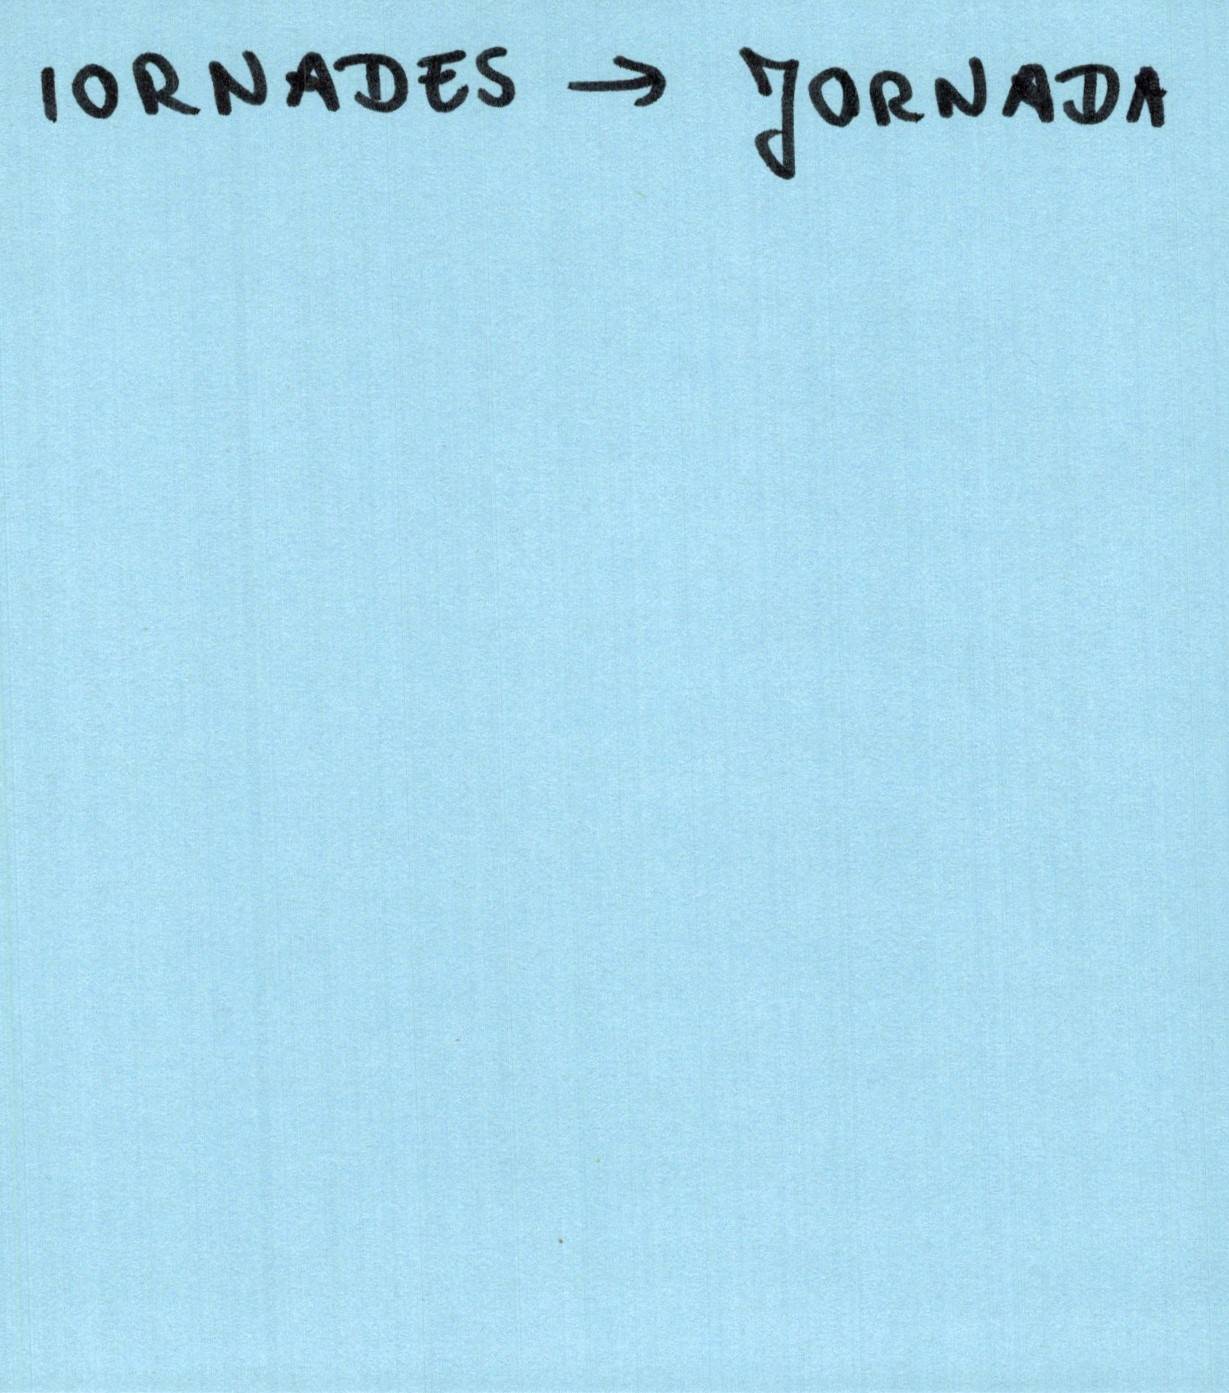 IORNADES → JORNADA